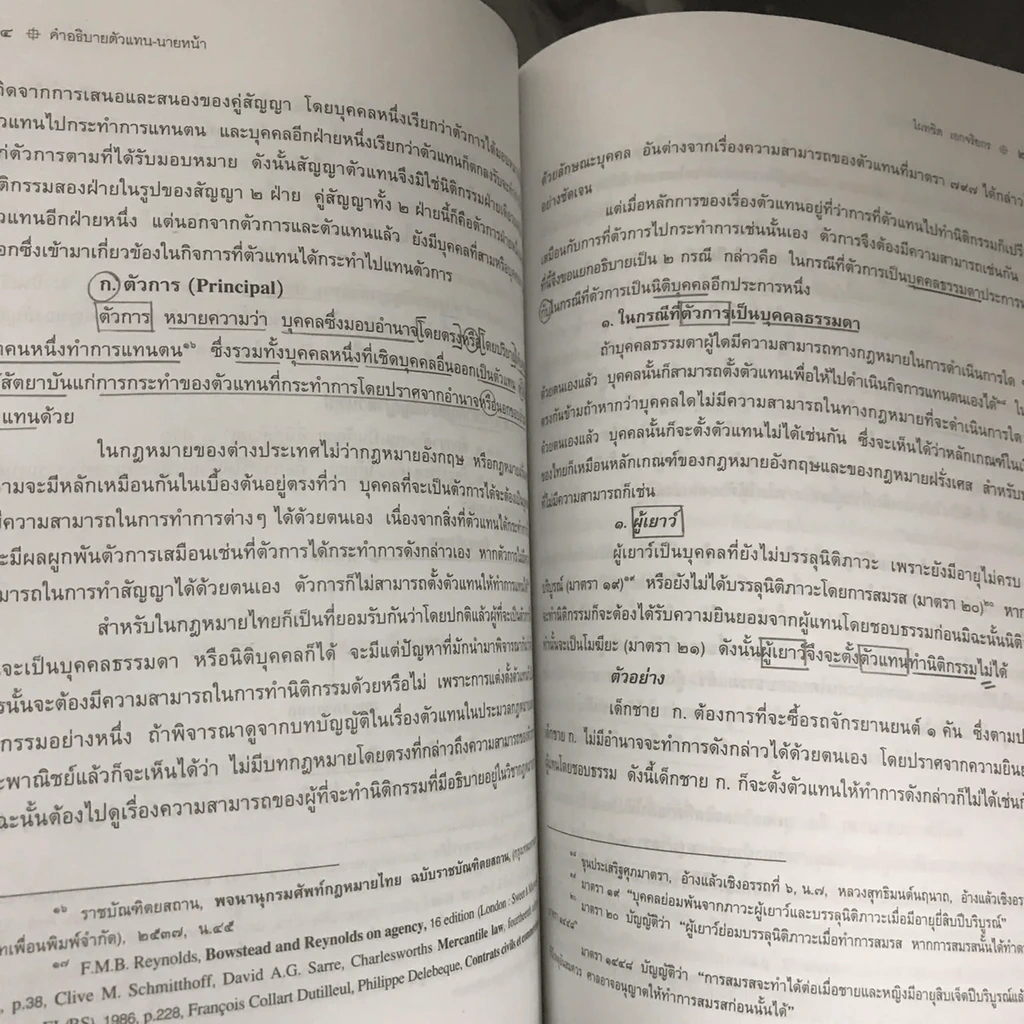 ๔ คำอธิบายตัวแทน-นายหน้า
กิดจากการเสนอและสนองของคู่สัญญา โดยบุคคลหนึ่งเรียกว่าตัวการได้มอบ
ตัวแทนไปกระทำการแทนตน และบุคคลอีกฝ่ายหนึ่งเรียกว่าตัวแทนก็ตกลงรับจะ
แก่ตัวการตามที่ได้รับมอบหมาย ดังนั้นสัญญาตัวแทนจึงมิใช่นิติกรรมฝ่ายเดียว
นิติกรรมสองฝ่ายในรูปของสัญญา ๒ ฝ่าย คู่สัญญาทั้ง ๒ ฝ่ายนี้ก็คือตัวการฝ่าย
ตัวแทนอีกฝ่ายหนึ่ง แต่นอกจากตัวการและตัวแทนแล้ว ยังมีบุคคลที่สามหรือบุคคล
นอกซึ่งเข้ามาเกี่ยวข้องในกิจการที่ตัวแทนได้กระทำไปแทนตัวการ
ก. ตัวการ (Principal)
ตัวการ หมายความว่า บุคคลซึ่งมอบอำนาจโดยตรงหรือโดยปริยาย
คนหนึ่งทำการแทนตน๑๖ ซึ่งรวมทั้งบุคคลหนึ่งที่เชิดบุคคลอื่นออกเป็นตัวแทน
สัตยาบันแก่การกระทำของตัวแทนที่กระทำการโดยปราศจากอำนาจหรือนอกขอบ
แทนด้วย
ในกฎหมายของต่างประเทศไม่ว่ากฎหมายอังกฤษ หรือกฎหมาย
ตามจะมีหลักเหมือนกันในเบื้องต้นอยู่ตรงที่ว่า บุคคลที่จะเป็นตัวการได้จะต้อง
มีความสามารถในการทำการต่างๆ ได้ด้วยตนเอง เนื่องจากสิ่งที่ตัวแทนได้กระทำ
จะมีผลผูกพันตัวการเสมือนเช่นที่ตัวการได้กระทำการดังกล่าวเอง หากตัวการไม่
สามารถในการทำสัญญาได้ด้วยตนเอง ตัวการก็ไม่สามารถตั้งตัวแทนให้ทำการแทน
สำหรับในกฎหมายไทยก็เป็นที่ยอมรับกันว่าโดยปกติแล้วผู้ที่จะเป็นตัวการ
จะเป็นบุคคลธรรมดา หรือนิติบุคคลก็ได้ จะมีแต่ปัญหาที่มักนำมาพิจารณา
การนั้นจะต้องมีความสามารถในการทำนิติกรรมด้วยหรือไม่ เพราะการแต่งตั้งตัวแทน
กรรมอย่างหนึ่ง ถ้าพิจารณาดูจากบทบัญญัติในเรื่องตัวแทนในประมวลกฎหมาย
และพาณิชย์แล้วก็จะเห็นได้ว่า ไม่มีบทกฎหมายโดยตรงที่กล่าวถึงความสามารถของ
ฉะนั้นต้องไปดูเรื่องความสามารถของผู้ที่จะทำนิติกรรมที่มีอธิบายอยู่ในวิชากฎหมาย
๑๖ ราชบัณฑิตยสถาน, พจนานุกรมศัพท์กฎหมายไทย ฉบับราชบัณฑิตยสถาน,
เพื่อนพิมพ์จำกัด), ๒๕๓๗, น.๔๕
๑๗ F.M.B. Reynolds, Bowstead and Reynolds on agency, 16 edition (London : Sweet &
p.38, Clive M. Schmitthoff, David A.G. Sarre, Charlesworths Mercantile law, fourteenth
1986, p.228, François Collart Dutilleul, Philippe Delebeque, Contrats civils et
ไผทชิต เอกจริยกร
ด้วยลักษณะบุคคล อันต่างจากเรื่องความสามารถของตัวแทนที่มาตรา ๗๙๗ ได้กล่าว
อย่างชัดเจน
แต่เมื่อหลักการของเรื่องตัวแทนอยู่ที่ว่าการที่ตัวแทนไปทำนิติกรรมก็เปรี
เสมือนกับการที่ตัวการไปกระทำการเช่นนั้นเอง ตัวการจึงต้องมีความสามารถเช่นกัน
ที่นี้จึงขอแยกอธิบายเป็น ๒ กรณี กล่าวคือ ในกรณีที่ตัวการเป็นบุคคลธรรมดาประการ
กับในกรณีที่ตัวการเป็นนิติบุคคลอีกประการหนึ่ง
๑. ในกรณีที่ตัวการเป็นบุคคลธรรมดา
ถ้าบุคคลธรรมดาผู้ใดมีความสามารถทางกฎหมายในการดำเนินการใด
ด้วยตนเองแล้ว บุคคลนั้นก็สามารถตั้งตัวแทนเพื่อให้ไปดำเนินกิจการแทนตนเองได้
ตรงกันข้ามถ้าหากว่าบุคคลใดไม่มีความสามารถในทางกฎหมายที่จะดำเนินการใด
ด้วยตนเองแล้ว บุคคลนั้นก็จะตั้งตัวแทนไม่ได้เช่นกัน ซึ่งจะเห็นได้ว่าหลักเกณฑ์ใน
ของไทยก็เหมือนหลักเกณฑ์ของกฎหมายอังกฤษและของกฎหมายฝรั่งเศส สำหรับ
ที่ไม่มีความสามารถก็เช่น
๑. ผู้เยาว์
ผู้เยาว์เป็นบุคคลที่ยังไม่บรรลุนิติภาวะ เพราะยังมีอายุไม่ครบ
บริบูรณ์ (มาตรา ๑๙)๑๙ หรือยังไม่ได้บรรลุนิติภาวะโดยการสมรส (มาตรา ๒๐)๒๐ หาก
จะทำนิติกรรมก็จะต้องได้รับความยินยอมจากผู้แทนโดยชอบธรรมก่อนมิฉะนั้นนิติ
ทำนั้นจะเป็นโมฆียะ (มาตรา ๒๑) ดังนั้นผู้เยาว์จึงจะตั้งตัวแทนทำนิติกรรมไม่ได้
ตัวอย่าง
เด็กชาย ก. ต้องการที่จะซื้อรถจักรยานยนต์ ๑ คัน ซึ่งตามป
เด็กชาย ก. ไม่มีอำนาจจะทำการดังกล่าวได้ด้วยตนเอง โดยปราศจากความยิน
ผู้แทนโดยชอบธรรม ดังนี้เด็กชาย ก. ก็จะตั้งตัวแทนให้ทำการดังกล่าวก็ไม่ได้เช่น
๑๘ ขุนประเสริฐศุภมาตรา, อ้างแล้วเชิงอรรถที่ ๖, น.๗, หลวงสุทธิมนต์นฤนาถ, อ้างแล้วเชิงอร
๑๙ มาตรา ๑๙ “บุคคลย่อมพ้นจากภาวะผู้เยาว์และบรรลุนิติภาวะเมื่อมีอายุยี่สิบปีบริบูรณ์”
๒๐ มาตรา ๒๐ บัญญัติว่า “ผู้เยาว์ย่อมบรรลุนิติภาวะเมื่อทำการสมรส หากการสมรสนั้นได้ทำ
มาตรา ๑๔๔๘”
มาตรา ๑๔๔๘ บัญญัติว่า “การสมรสจะทำได้ต่อเมื่อชายและหญิงมีอายุสิบเจ็ดปีบริบูรณ์แล้
ศาลอาจอนุญาตให้ทำการสมรสก่อนนั้นได้”